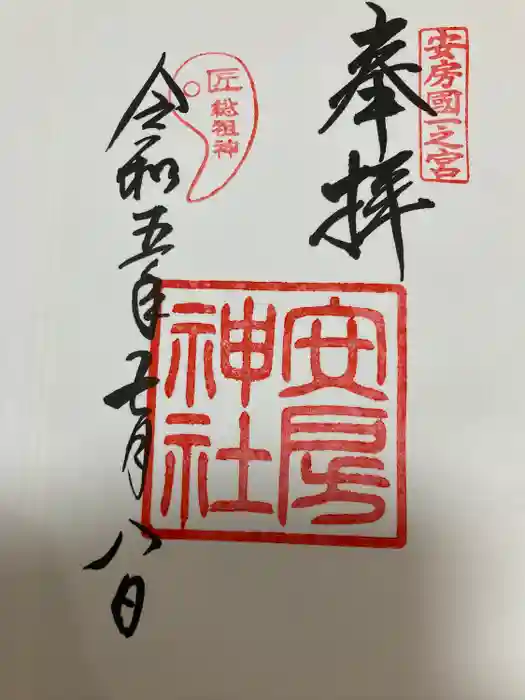 安房國一之宮
奉拝
安房
神社
匠
総祖神
令和五年七月八日